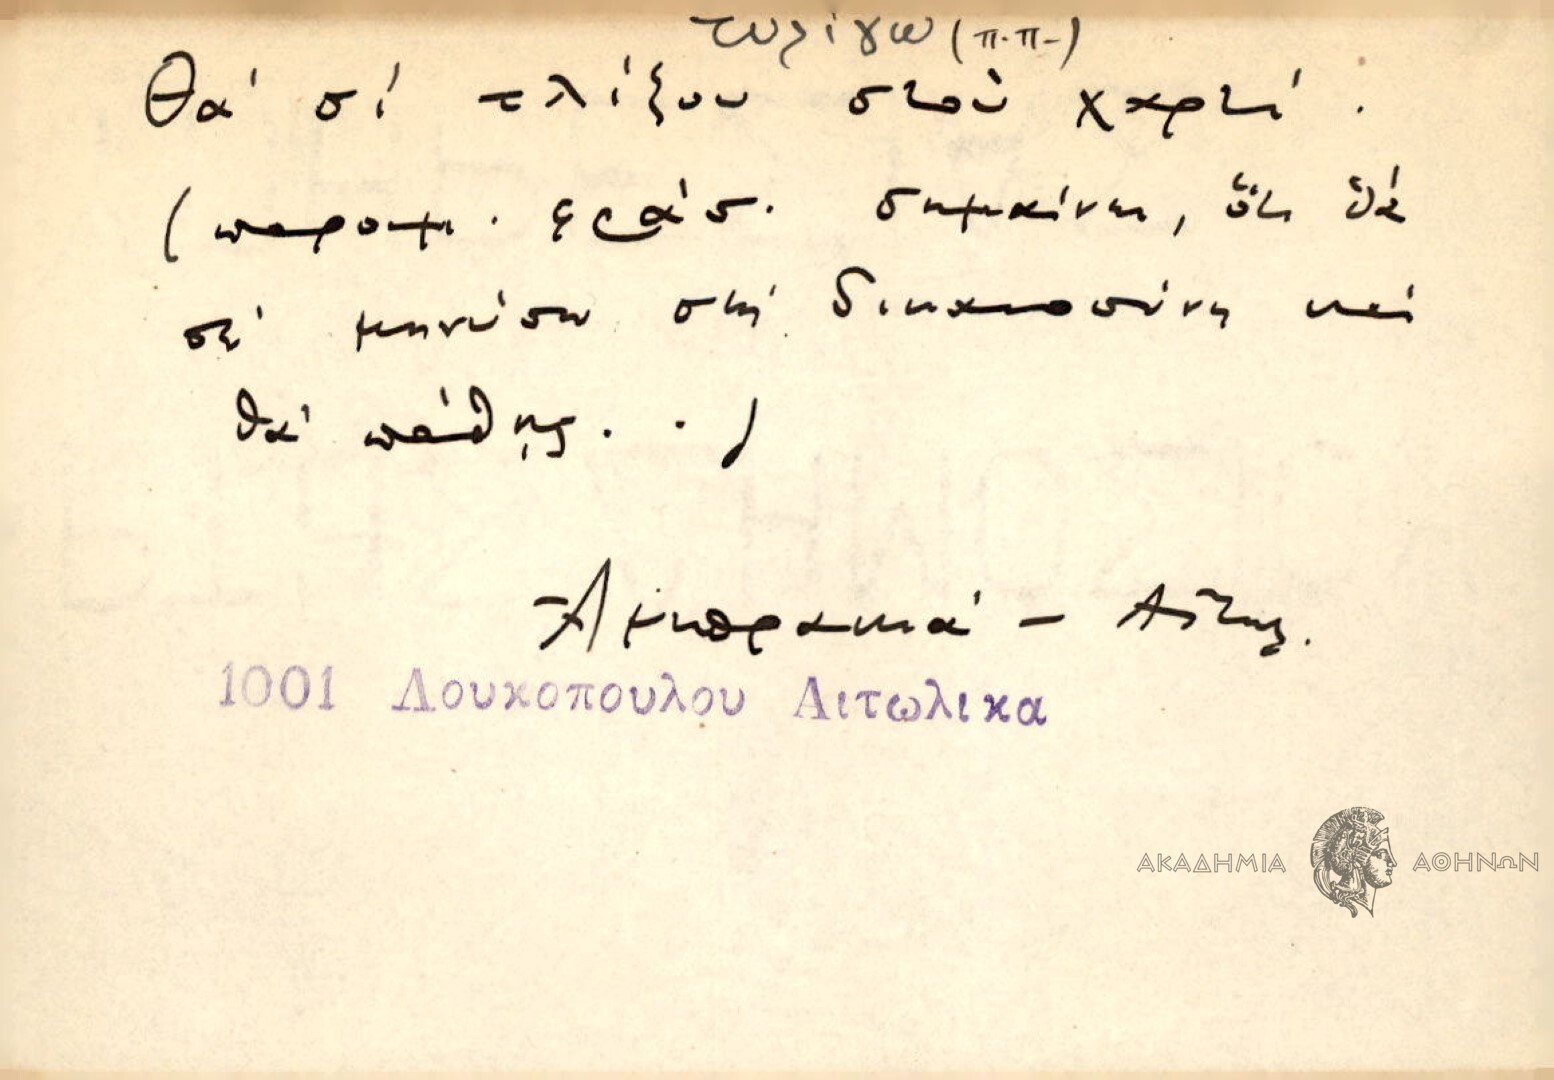 τυλίγω (π.π-)
Θὰ σὶ τλίξου στοὺ χαρτί.
(παροιμ. φράσ. σημαίνει, ὅτι θὰ
σὲ μηνύσω στὴ δικαιοσύνη καὶ
θὰ πάθῃς. .)
Ἀμπρακιά - Αἰτωλ.
1001 Λουκοπουλου Αιτωλικα
ΑΚΑΔΗΜΙΑ ΑΘΗΝΩΝ